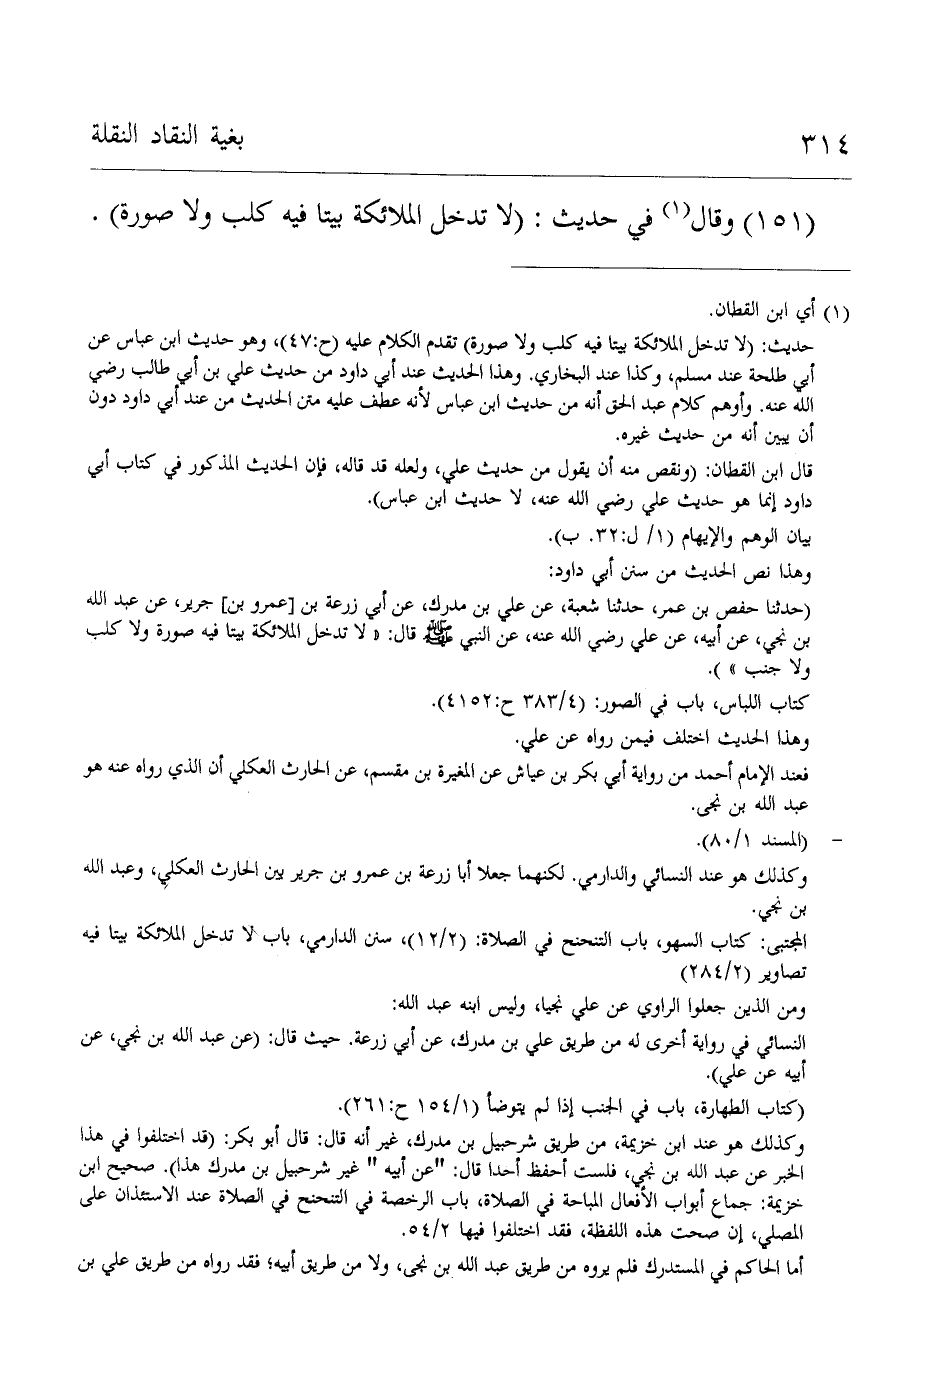 ٣١٤ بغية النقاد النقلة
(١٥١) وقال(١) في حديث : (لا تدخل الملائكة بيتا فيه كلب ولا صورة) .
(١) أي ابن القطان.
حديث: (لا تدخل الملائكة بيتا فيه كلب ولا صورة) تقدم الكلام عليه (ح:٤٧)، وهو حديث ابن عباس عن
أبي طلحة عند مسلم، وكذا عند البخاري. وهذا الحديث عند أبي داود من حديث علي بن أبي طالب رضي
الله عنه. وأوهم كلام عبد الحق أنه من حديث ابن عباس لأنه عطف عليه متن الحديث من عند أبي داود دون
أن يبين أنه من حديث غيره.
قال ابن القطان: (ونقص منه أن يقول من حديث علي، ولعله قد قاله، فإن الحديث المذكور في كتاب أبي
داود إنما هو حديث علي رضي الله عنه، لا حديث ابن عباس).
بيان الوهم والإيهام (١/ ل:٣٢. ب).
وهذا نص الحديث من سنن أبي داود:
(حدثنا حفص بن عمر، حدثنا شعبة، عن علي بن مدرك، عن أبي زرعة بن [عمرو بن] جرير، عن عبد الله
بن نجي، عن أبيه، عن علي رضي الله عنه، عن النبي ﷺ قال: « لا تدخل الملائكة بيتا فيه صورة ولا كلب
ولا جنب » ).
كتاب اللباس، باب في الصور: (٣٨٣/٤ ح:٤١٥٢).
وهذا الحديث اختلف فيمن رواه عن علي.
فعند الإمام أحمد من رواية أبي بكر بن عياش عن المغيرة بن مقسم، عن الحارث العكلي أن الذي رواه عنه هو
عبد الله بن نجى.
– (المسند ٨٠/١).
وكذلك هو عند النسائي والدارمي. لكنهما جعلا أبا زرعة بن عمرو بن جرير بين الحارث العكلي، وعبد الله
بن نجي.
المجتبى: كتاب السهو، باب التنحنح في الصلاة: (١٢/٢)، سنن الدارمي، باب لا تدخل الملائكة بيتا فيه
تصاوير (٢٨٤/٢)
ومن الذين جعلوا الراوي عن علي نجيا، وليس ابنه عبد الله:
النسائي في رواية أخرى له من طريق علي بن مدرك، عن أبي زرعة. حيث قال: (عن عبد الله بن نجي، عن
أبيه عن علي).
(كتاب الطهارة، باب في الجنب إذا لم يتوضأ (١٥٤/١ ح:٢٦١).
وكذلك هو عند ابن خزيمة، من طريق شرحبيل بن مدرك، غير أنه قال: قال أبو بكر: (قد اختلفوا في هذا
الخبر عن عبد الله بن نجي، فلست أحفظ أحدا قال: "عن أبيه " غير شرحبيل بن مدرك هذا). صحيح ابن
خزيمة: جماع أبواب الأفعال المباحة في الصلاة، باب الرخصة في التنحنح في الصلاة عند الاستئذان على
المصلي، إن صحت هذه اللفظة، فقد اختلفوا فيها ٥٤/٢.
أما الحاكم في المستدرك فلم يروه من طريق عبد الله بن نجى، ولا من طريق أبيه؛ فقد رواه من طريق علي بن